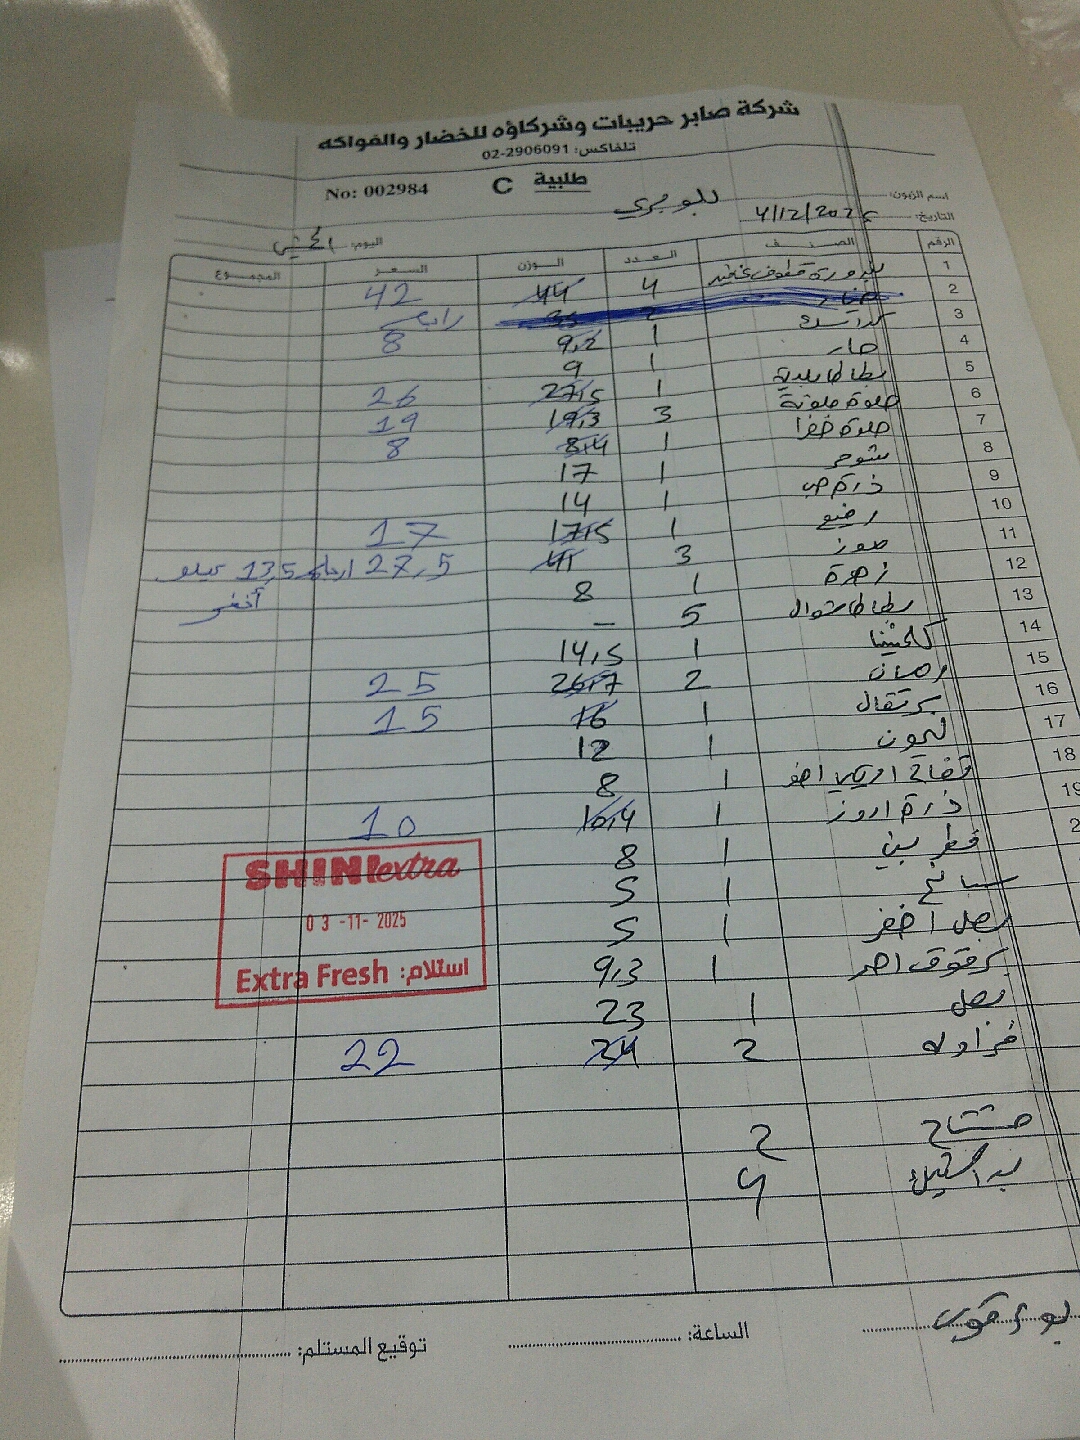 شركة صابر حريبات وشركاؤه للخضار والفواكه
تلفاكس: 02-2906091
طلبية C No: 002984
اسم الزبون:
التاريخ: 4/12/2025
اليوم: الخميس
الرقم الصنف العدد الوزن السعر المجموع
1 بندورة 4 44 42
2 خيار 2
3 1 9,2 8
4 خيار 1 9
5 بطاطا بلدية 1 27,5 26
6 حلوة ملونة 3 19,3 19
7 حلوة خضرا 1 8,4 8
8 شومر 1 17
9 ذرة 1 14
10 1 17,5 17
11 موز 3 41 27,5 ارجاع 13,5 كيلو أخضر
12 زهرة 1 8
13 بطاطا شوال 5 –
14 كلمنتينا 1 14,5
15 رمان 2 26,7 25
16 برتقال 1 16 15
17 ليمون 1 12
18 تفاح اخضر 1 8
19 ذرة 1 10,4 10
2 1 8
سبانخ 1 5
بصل اخضر 1 5
برقوق احمر 1 9,3
بصل 1 23
فراولة 2 24 22
2
4
SHINI extra
03-11-2025
Extra Fresh استلام:
الساعة:
توقيع المستلم: